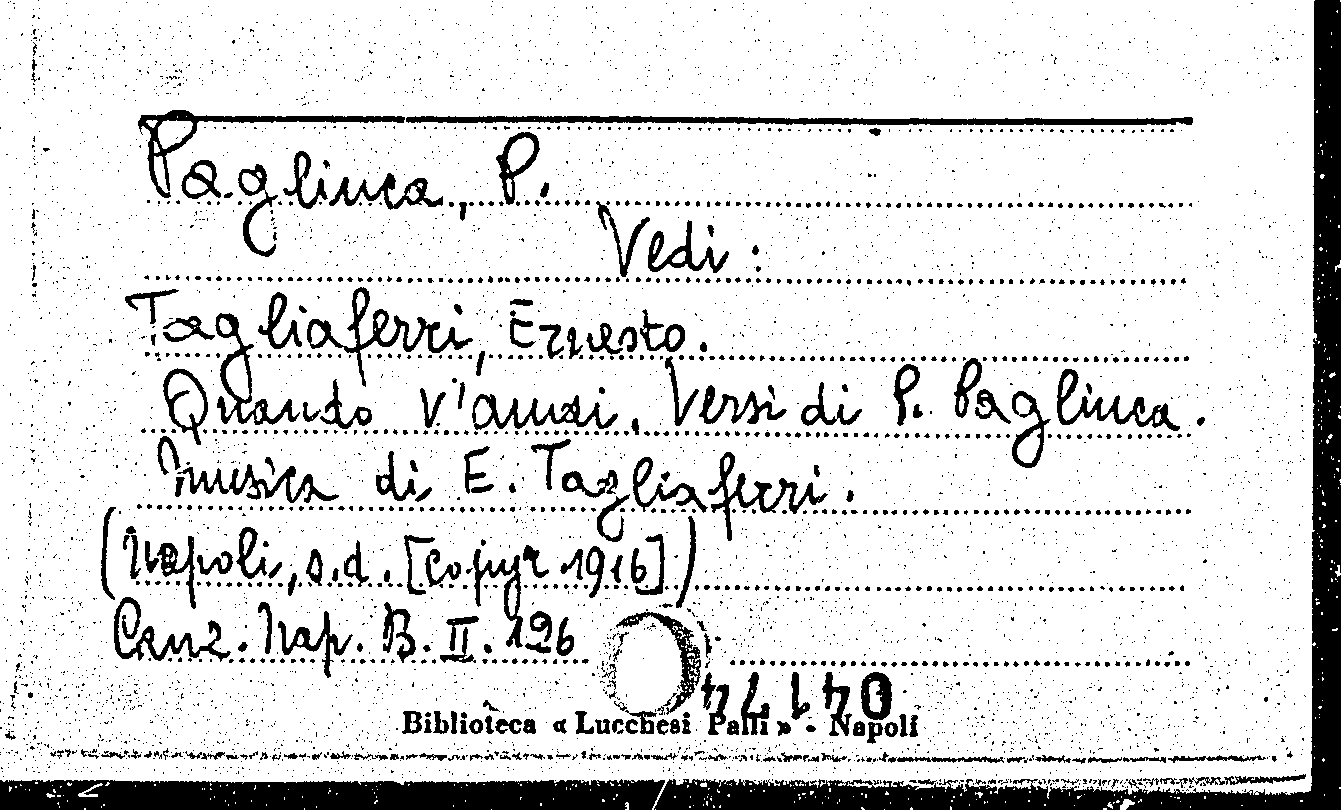 Pagliuca, P.
Vedi:
Tagliaferri, Ernesto.
Quando v'amai. Versi di P. Pagliuca.
Musica di E. Tagliaferri.
(Napoli, s.d. [Copyr 1916])
Canz. Nap. B. II. 126
04174
Biblioteca « Lucchesi Palli » - Napoli